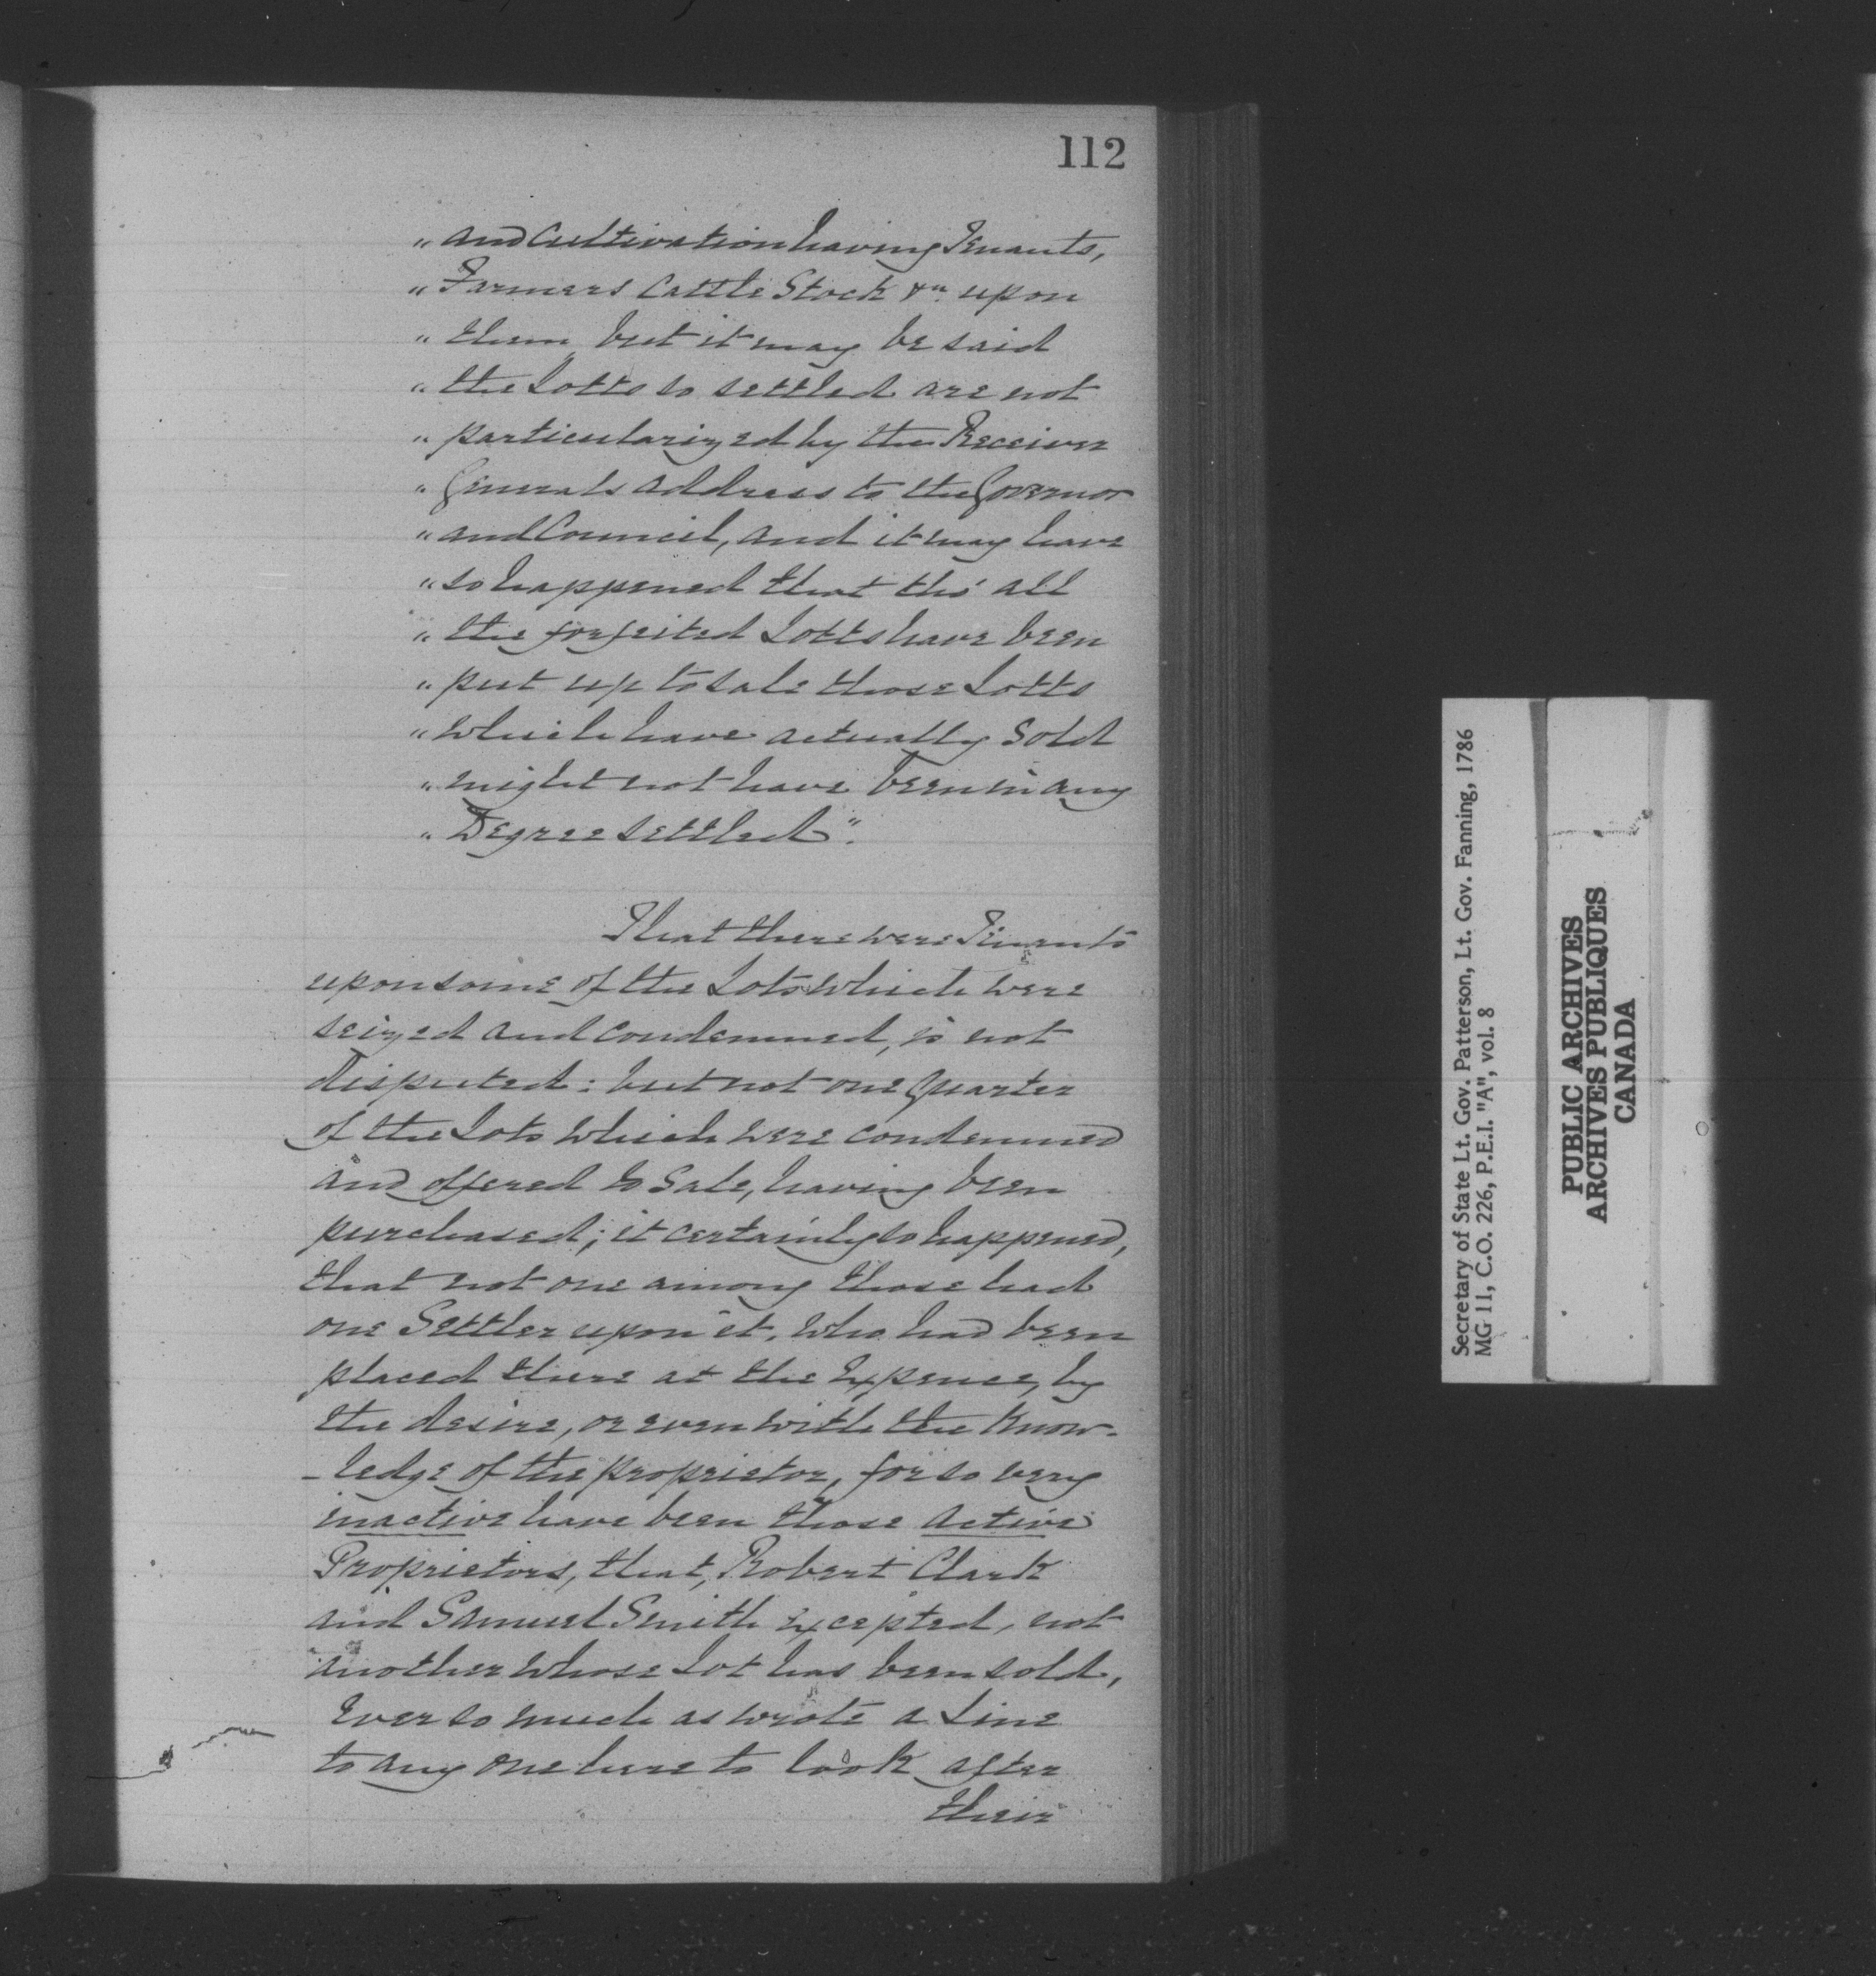 112
" and Cultivation having Tenants,
" Farmers Cattle Stock &c. upon
" them but it may be said
" the Lotts so settled are not
" particularized by the Receiver
" Generals address to the Governor
" and Council, and it may have
" so happened that tho' all
" the forfeited Lotts have been
" put up to sale those Lotts
" which have actually sold
" might not have been in any
" Degree settled".
That there were Tenants
upon some of the Lots which were
seized and condemned, is not
disputed: but not one Quarter
of the Lots which were condemned
and offered to Sale, having been
purchased; it certainly so happened,
that not one among those had
one Settler upon it, who had been
placed there at the Expence, by
the desire, or even with the Know-
-ledge of the proprietor, for so very
inactive have been those active
Proprietors, that, Robert Clark
and Samuel Smith excepted, not
another whose Lot has been sold,
Ever so much as wrote a Line
to any one here to look after
their
Secretary of State Lt. Gov. Patterson, Lt. Gov. Fanning, 1786
MG 11, C.O. 226, P.E.I. "A", vol. 8
PUBLIC ARCHIVES
ARCHIVES PUBLIQUES
CANADA